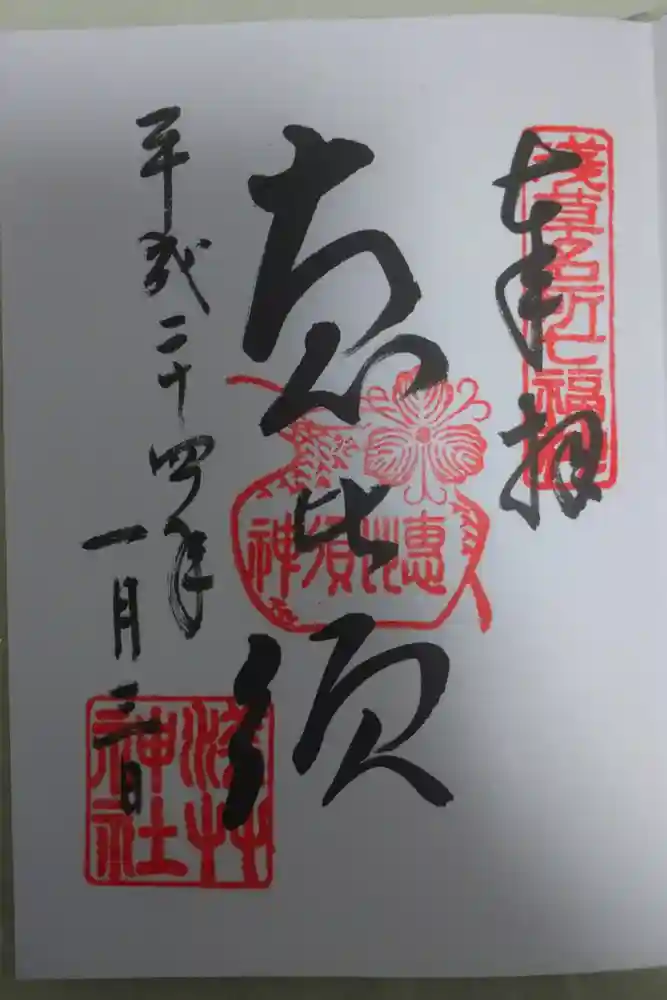 淺草名所七福神
奉拝
恵比須
惠比須神
平成二十四年
一月三日
淺艸神社